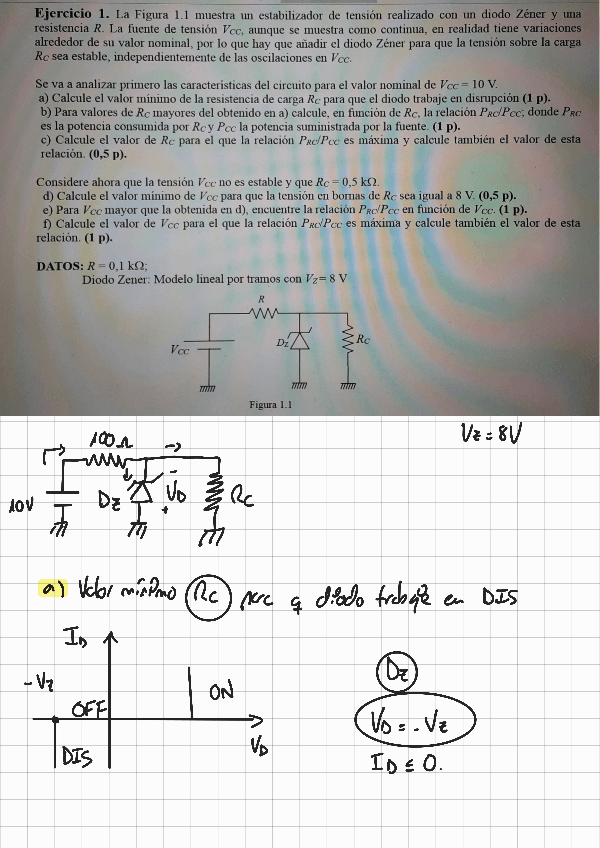 Ejercicio 1. La Figura 1.1 muestra un estabilizador de tensión realizado con un diodo Zéner y una
resistencia R. La fuente de tensión VCC, aunque se muestra como continua, en realidad tiene variaciones
alrededor de su valor nominal, por lo que hay que añadir el diodo Zéner para que la tensión sobre la carga
RC sea estable, independientemente de las oscilaciones en VCC.
Se va a analizar primero las características del circuito para el valor nominal de VCC = 10 V.
a) Calcule el valor mínimo de la resistencia de carga RC para que el diodo trabaje en disrupción (1 p).
b) Para valores de RC mayores del obtenido en a) calcule, en función de RC, la relación PRC/PCC, donde PRC
es la potencia consumida por RC y PCC la potencia suministrada por la fuente. (1 p).
c) Calcule el valor de RC para el que la relación PRC/PCC es máxima y calcule también el valor de esta
relación. (0,5 p).
Considere ahora que la tensión VCC no es estable y que RC = 0,5 kΩ.
d) Calcule el valor mínimo de VCC para que la tensión en bornas de RC sea igual a 8 V. (0,5 p).
e) Para VCC mayor que la obtenida en d), encuentre la relación PRC/PCC en función de VCC. (1 p).
f) Calcule el valor de VCC para el que la relación PRC/PCC es máxima y calcule también el valor de esta
relación. (1 p).
DATOS: R = 0,1 kΩ;
Diodo Zener: Modelo lineal por tramos con VZ = 8 V
R
VCC
DZ
RC
Figura 1.1
VZ = 8V
100 Ω
10V
DZ
-
VD
+
RC
a) Valor mínimo RC para q diodo trabaje en DIS
ID
-VZ
ON
OFF
VD
DIS
DZ
VD = -VZ
ID ≤ 0.